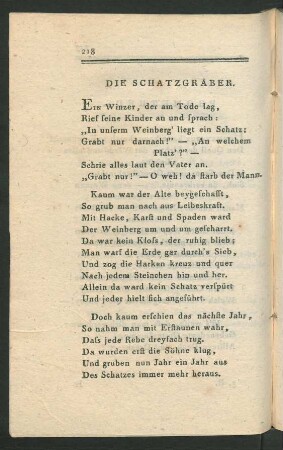 218
DIE SCHATZGRÄBER.
Ein Winzer, der am Tode lag,
Rief ſeine Kinder an und ſprach:
„In unſerm Weinberg' liegt ein Schatz;
Grabt nur darnach!” — „An welchem
Platz'?” —
Schrie alles laut den Vater an.
„Grabt nur!” — O weh! da ſtarb der Mann.
Kaum war der Alte beygeſchafft,
So grub man nach aus Leibeskraft.
Mit Hacke, Karſt und Spaden ward
Der Weinberg um und um geſcharrt.
Da war kein Kloſs, der ruhig blieb;
Man warf die Erde gar durch's Sieb,
Und zog die Harken kreuz und quer
Nach jedem Steinchen hin und her.
Allein da ward kein Schatz verſpürt
Und jeder hielt ſich angeführt.
Doch kaum erſchien das nächſte Jahr,
So nahm man mit Erſtaunen wahr,
Daſs jede Rebe dreyfach trug.
Da wurden erſt die Söhne klug,
Und gruben nun Jahr ein Jahr aus
Des Schatzes immer mehr heraus.